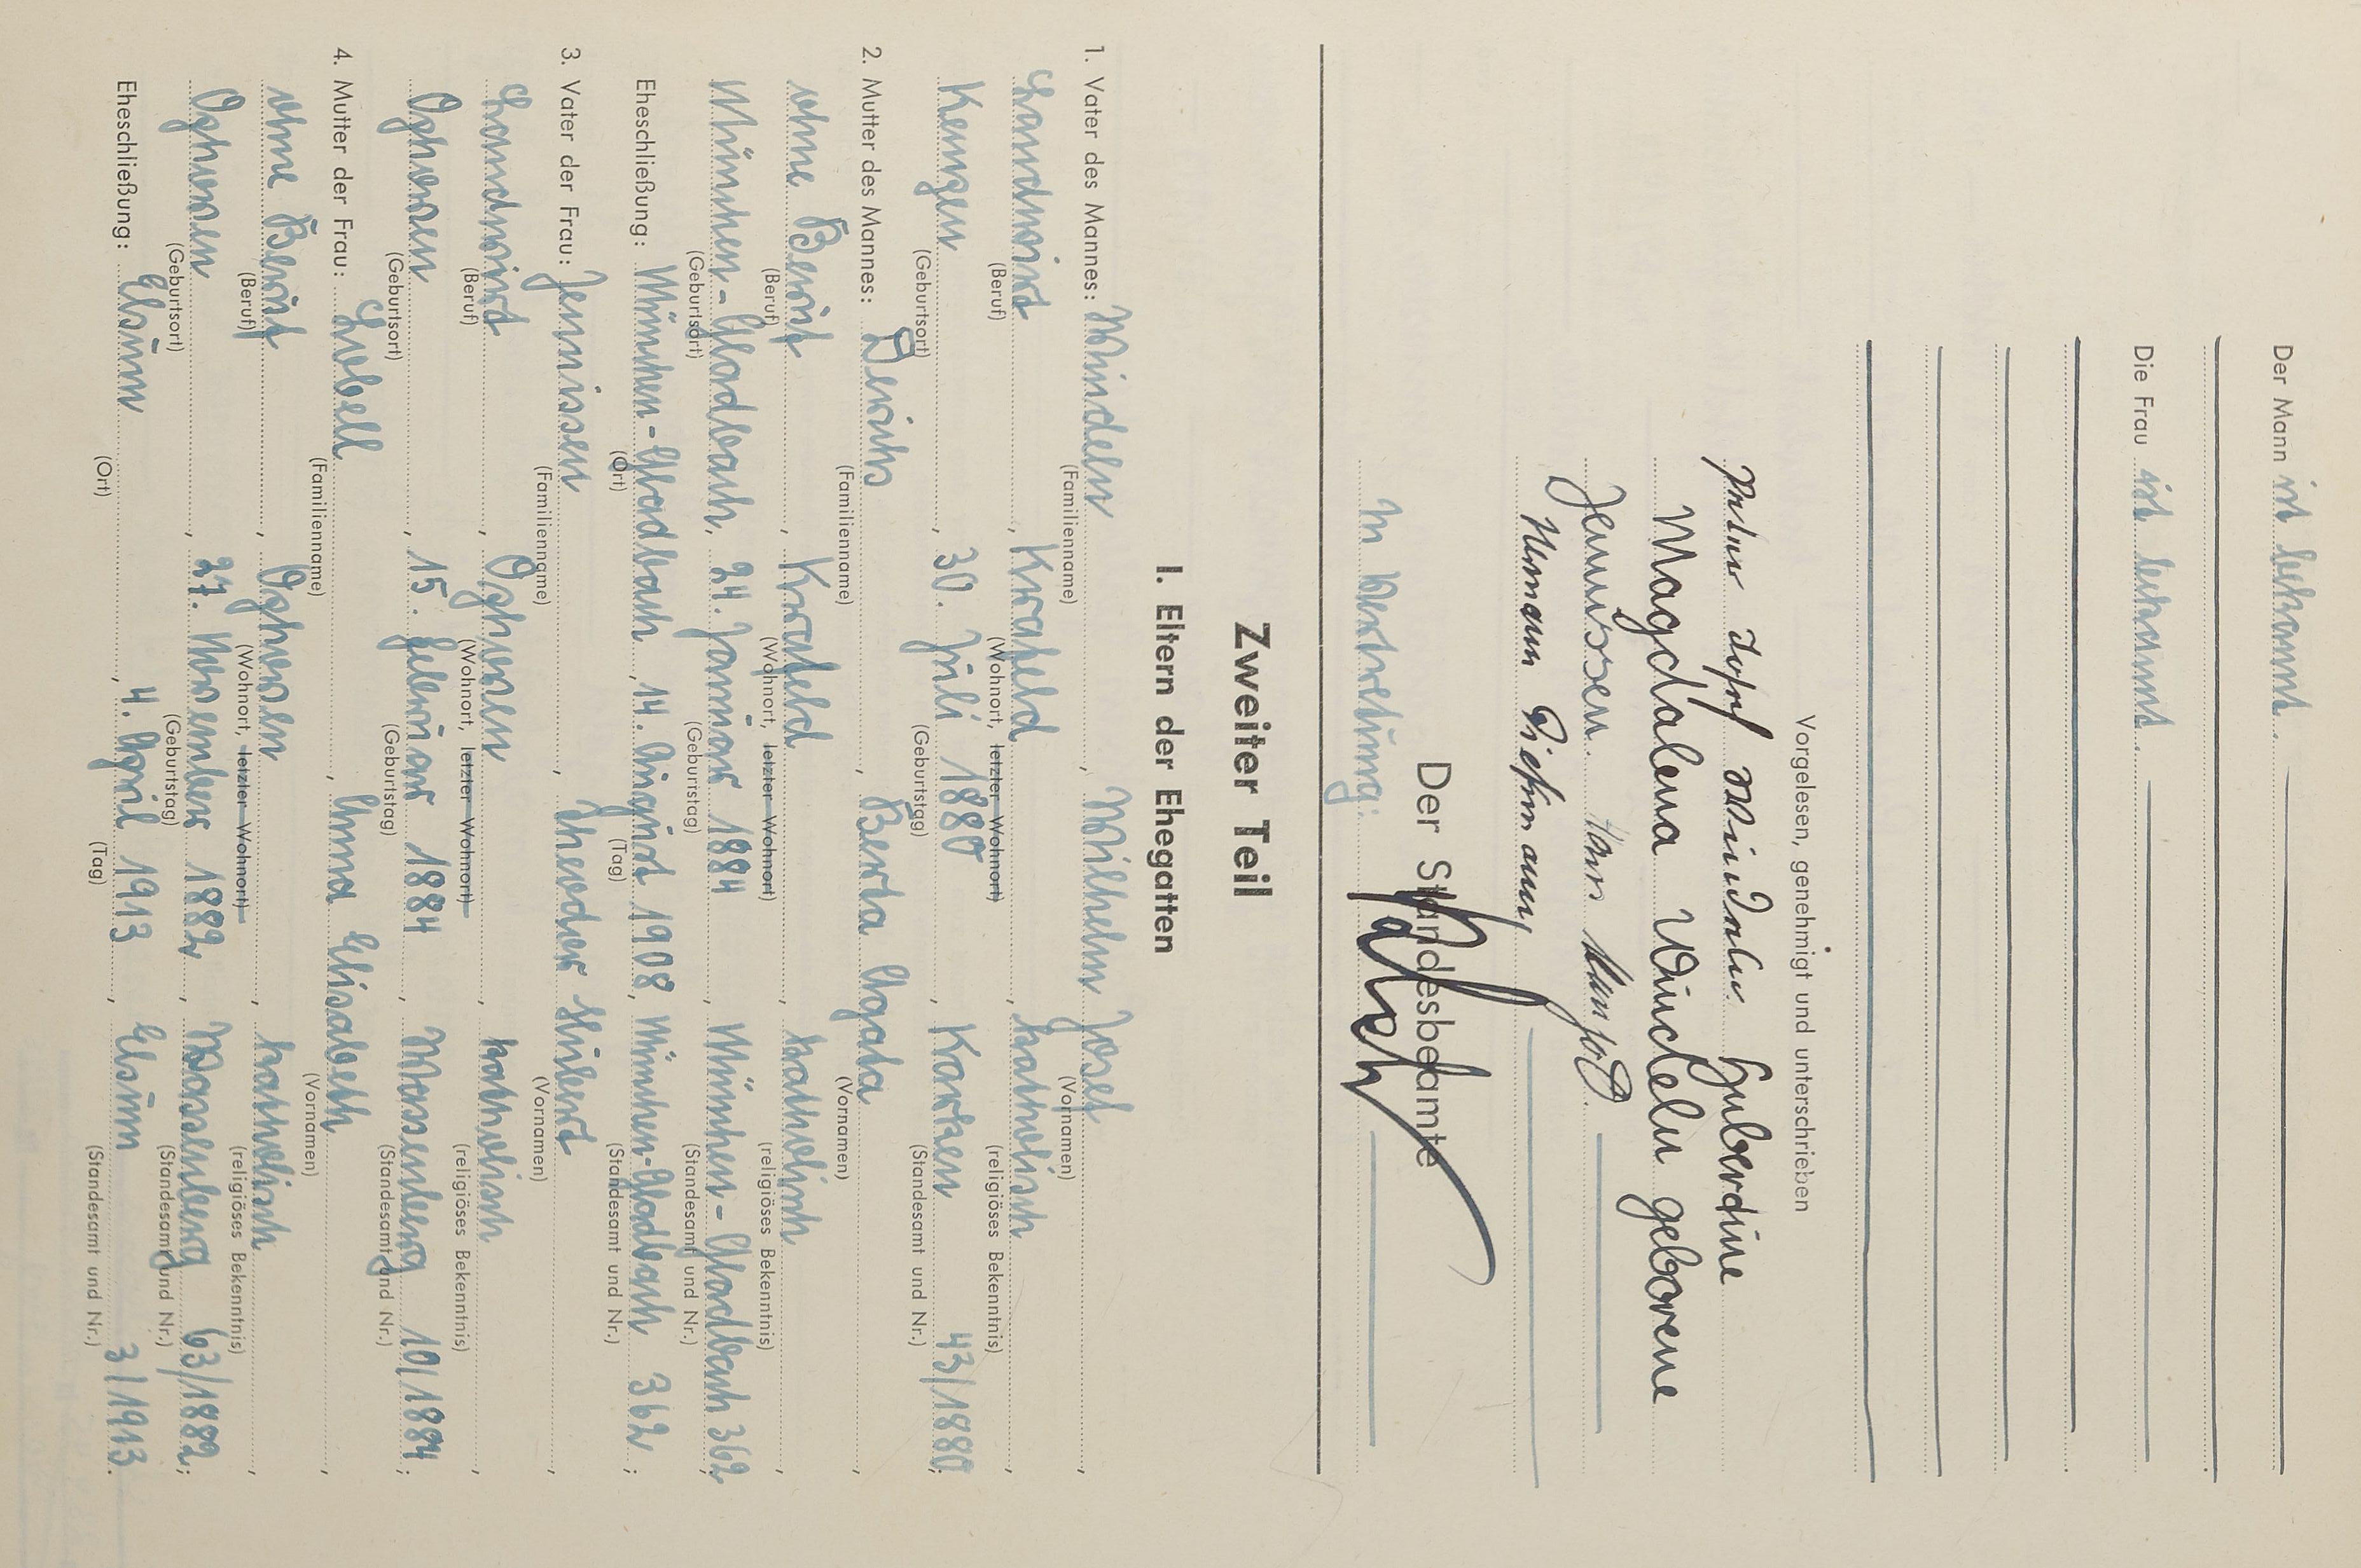 Der Mann ist bekannt.
Die Frau ist bekannt.
Vorgelesen, genehmigt und unterschrieben
Josef Windeln Huberdine
Magdalena Windeln geborene
Jennissen.
Hermann
In Vertretung:
Der Standesbeamte
Zweiter Teil
I. Eltern der Ehegatten
1. Vater des Mannes: Windeln, Wilhelm Josef,
(Familienname) (Vornamen)
Landwirt, Krafeld, katholisch,
(Beruf) (Wohnort, letzter Wohnort) (religiöses Bekenntnis)
Kengen, 30. Juli 1880, Karken 43/1880;
(Geburtsort) (Geburtstag) (Standesamt und Nr.)
2. Mutter des Mannes: Derichs, Berta Agata,
(Familienname) (Vornamen)
ohne Beruf, Krafeld, katholisch,
(Beruf) (Wohnort, letzter Wohnort) (religiöses Bekenntnis)
München-Gladbach, 24. Januar 1884, München-Gladbach 362;
(Geburtsort) (Geburtstag) (Standesamt und Nr.)
Eheschließung: München-Gladbach, 14. August 1908, München-Gladbach 362;
(Ort) (Tag) (Standesamt und Nr.)
3. Vater der Frau: Jennissen, Theodor Hubert,
(Familienname) (Vornamen)
Landwirt, Ophoven, katholisch,
(Beruf) (Wohnort, letzter Wohnort) (religiöses Bekenntnis)
Ophoven, 15. Februar 1884, Wassenberg 10/1884;
(Geburtsort) (Geburtstag) (Standesamt und Nr.)
4. Mutter der Frau: Lubell, Anna Elisabeth,
(Familienname) (Vornamen)
ohne Beruf, Ophoven, katholisch,
(Beruf) (Wohnort, letzter Wohnort) (religiöses Bekenntnis)
Ophoven, 27. November 1882, Wassenberg 63/1882;
(Geburtsort) (Geburtstag) (Standesamt und Nr.)
Eheschließung: Elsum, 4. April 1913, Elsum 3/1913.
(Ort) (Tag) (Standesamt und Nr.)